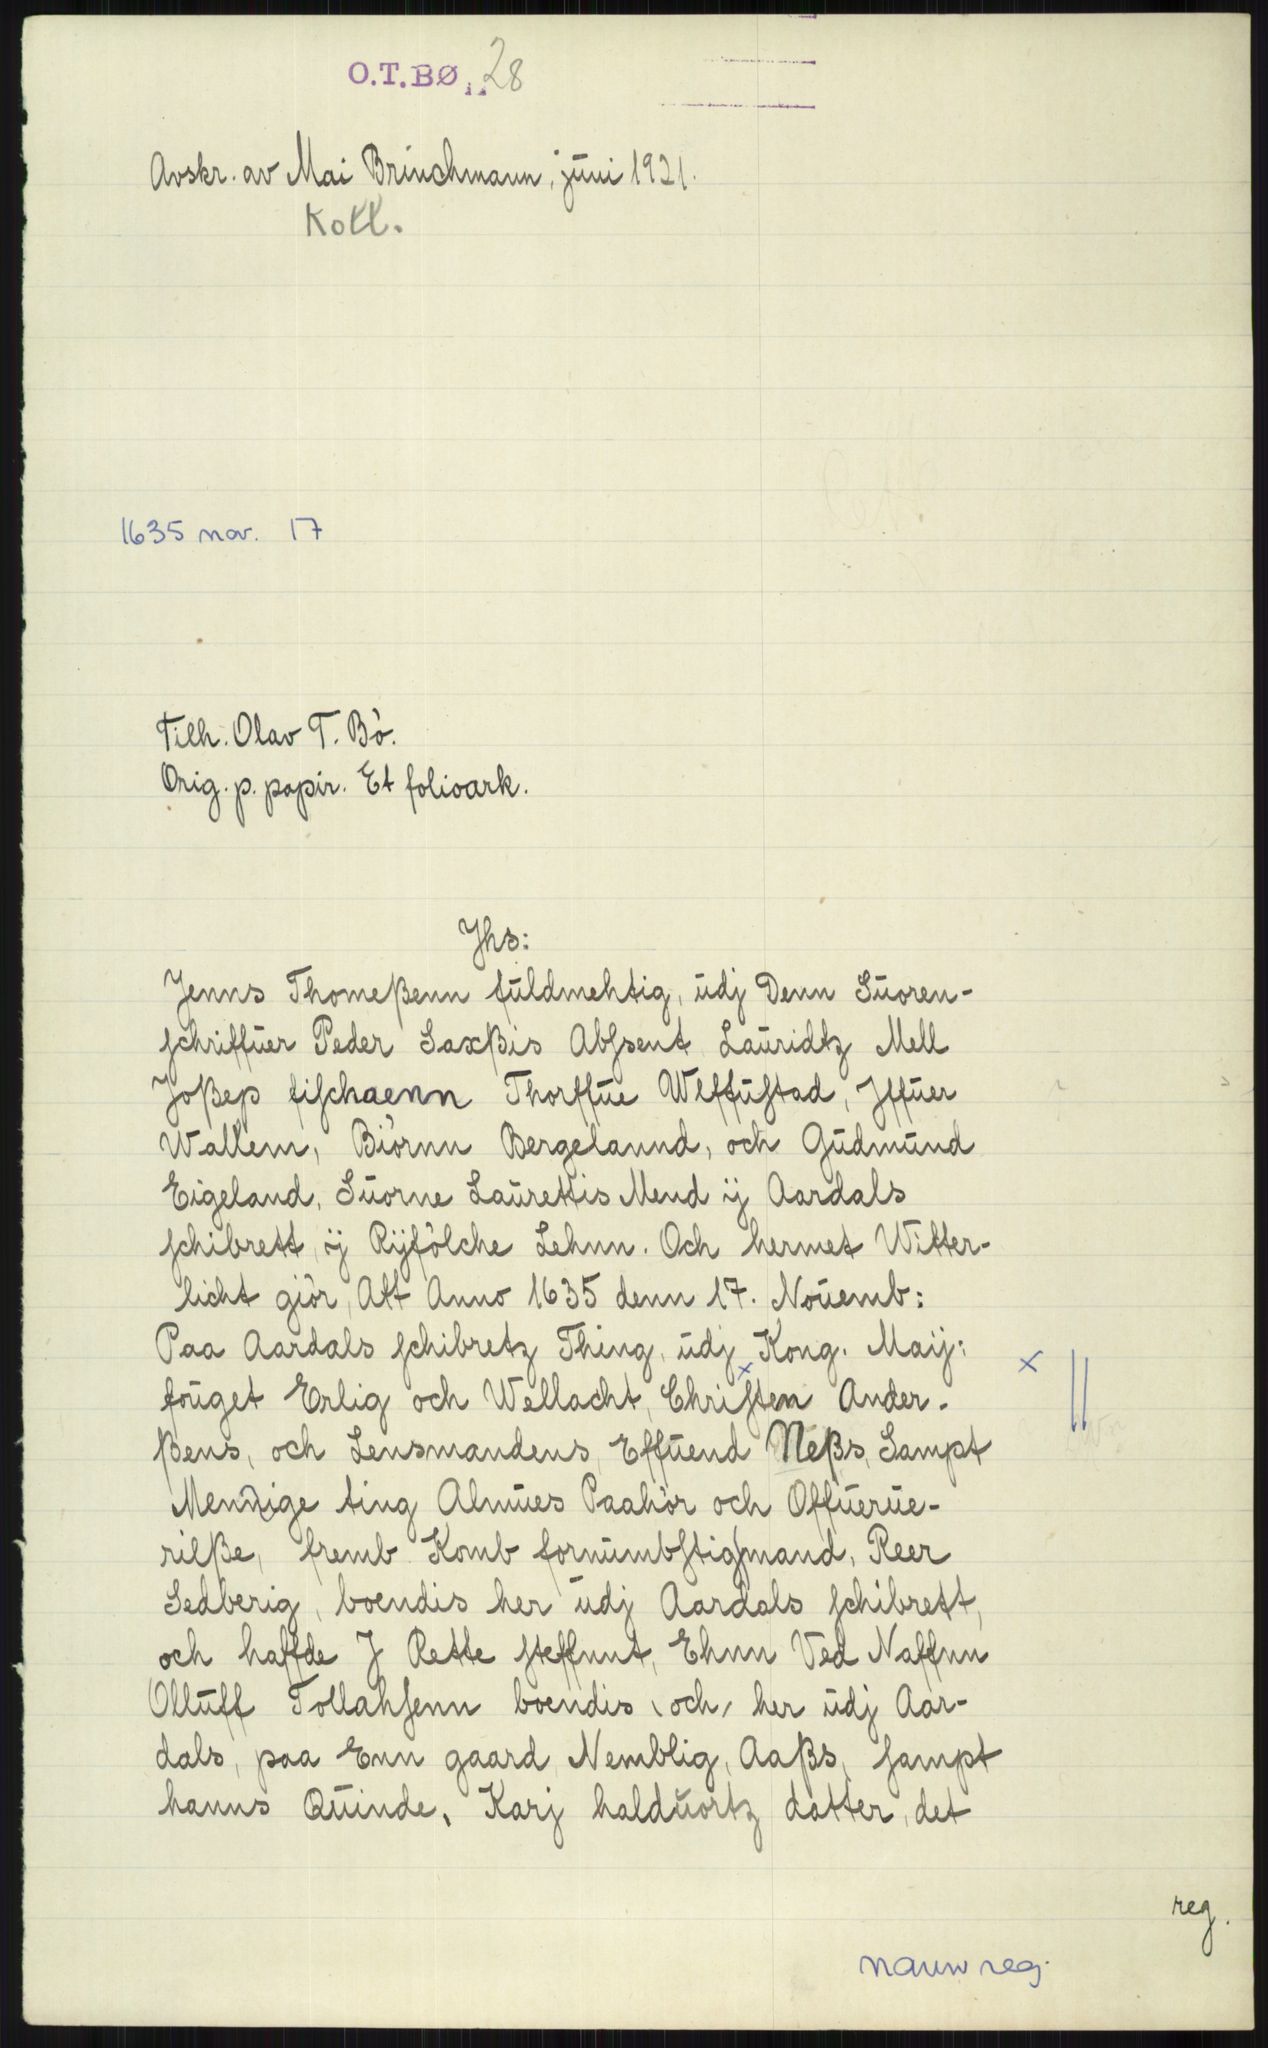 O.T.BØ. 28
Avskr. av Mai Brinchmann, juni 1921.
Koll.
1635 nov. 17
Tilh. Olav T. Bö.
Orig. p. papir. Et folioark.
Jhs:
Jenns Thomeßenn fuldmehtig, udj Denn Suoren-
schriffuer Peder Saxßis Absent Lauridtz Mell
Joßep fischaenn Thorffue Wlffustad, Jffuer
Wallem, Biörnn Bergelannd, och Gudmund
Eigeland, Suorne Laurettis Mend ij Aardals
schibrett, ij Rÿfölche Lehnn. Och hermet Witter-
licht giör, Att Anno 1635 denn 17. Nouemb:
Paa Aardals schibretz Thing, udj Kong. Maij:
fouget Erlig och Wellacht, Christen Ander-
ßens, och Lensmandens, Effuend Neßs, Sampt
Mennige ting Almues Paahör och Offuerue-
rilße, fremb Komb fornumbstig mand, Reer
Sedberig, boendis her udj Aardals schibrett,
och haffde J Rette steffnnt, Ehnn Ved Naffnn
Olluff Tollahsenn boendis, och, her udj Aar-
dals, paa Enn gaard Nemblig, Aaßs, sampt
hanns Quinde, Karj halduortz datter, det
reg.
navnreg.